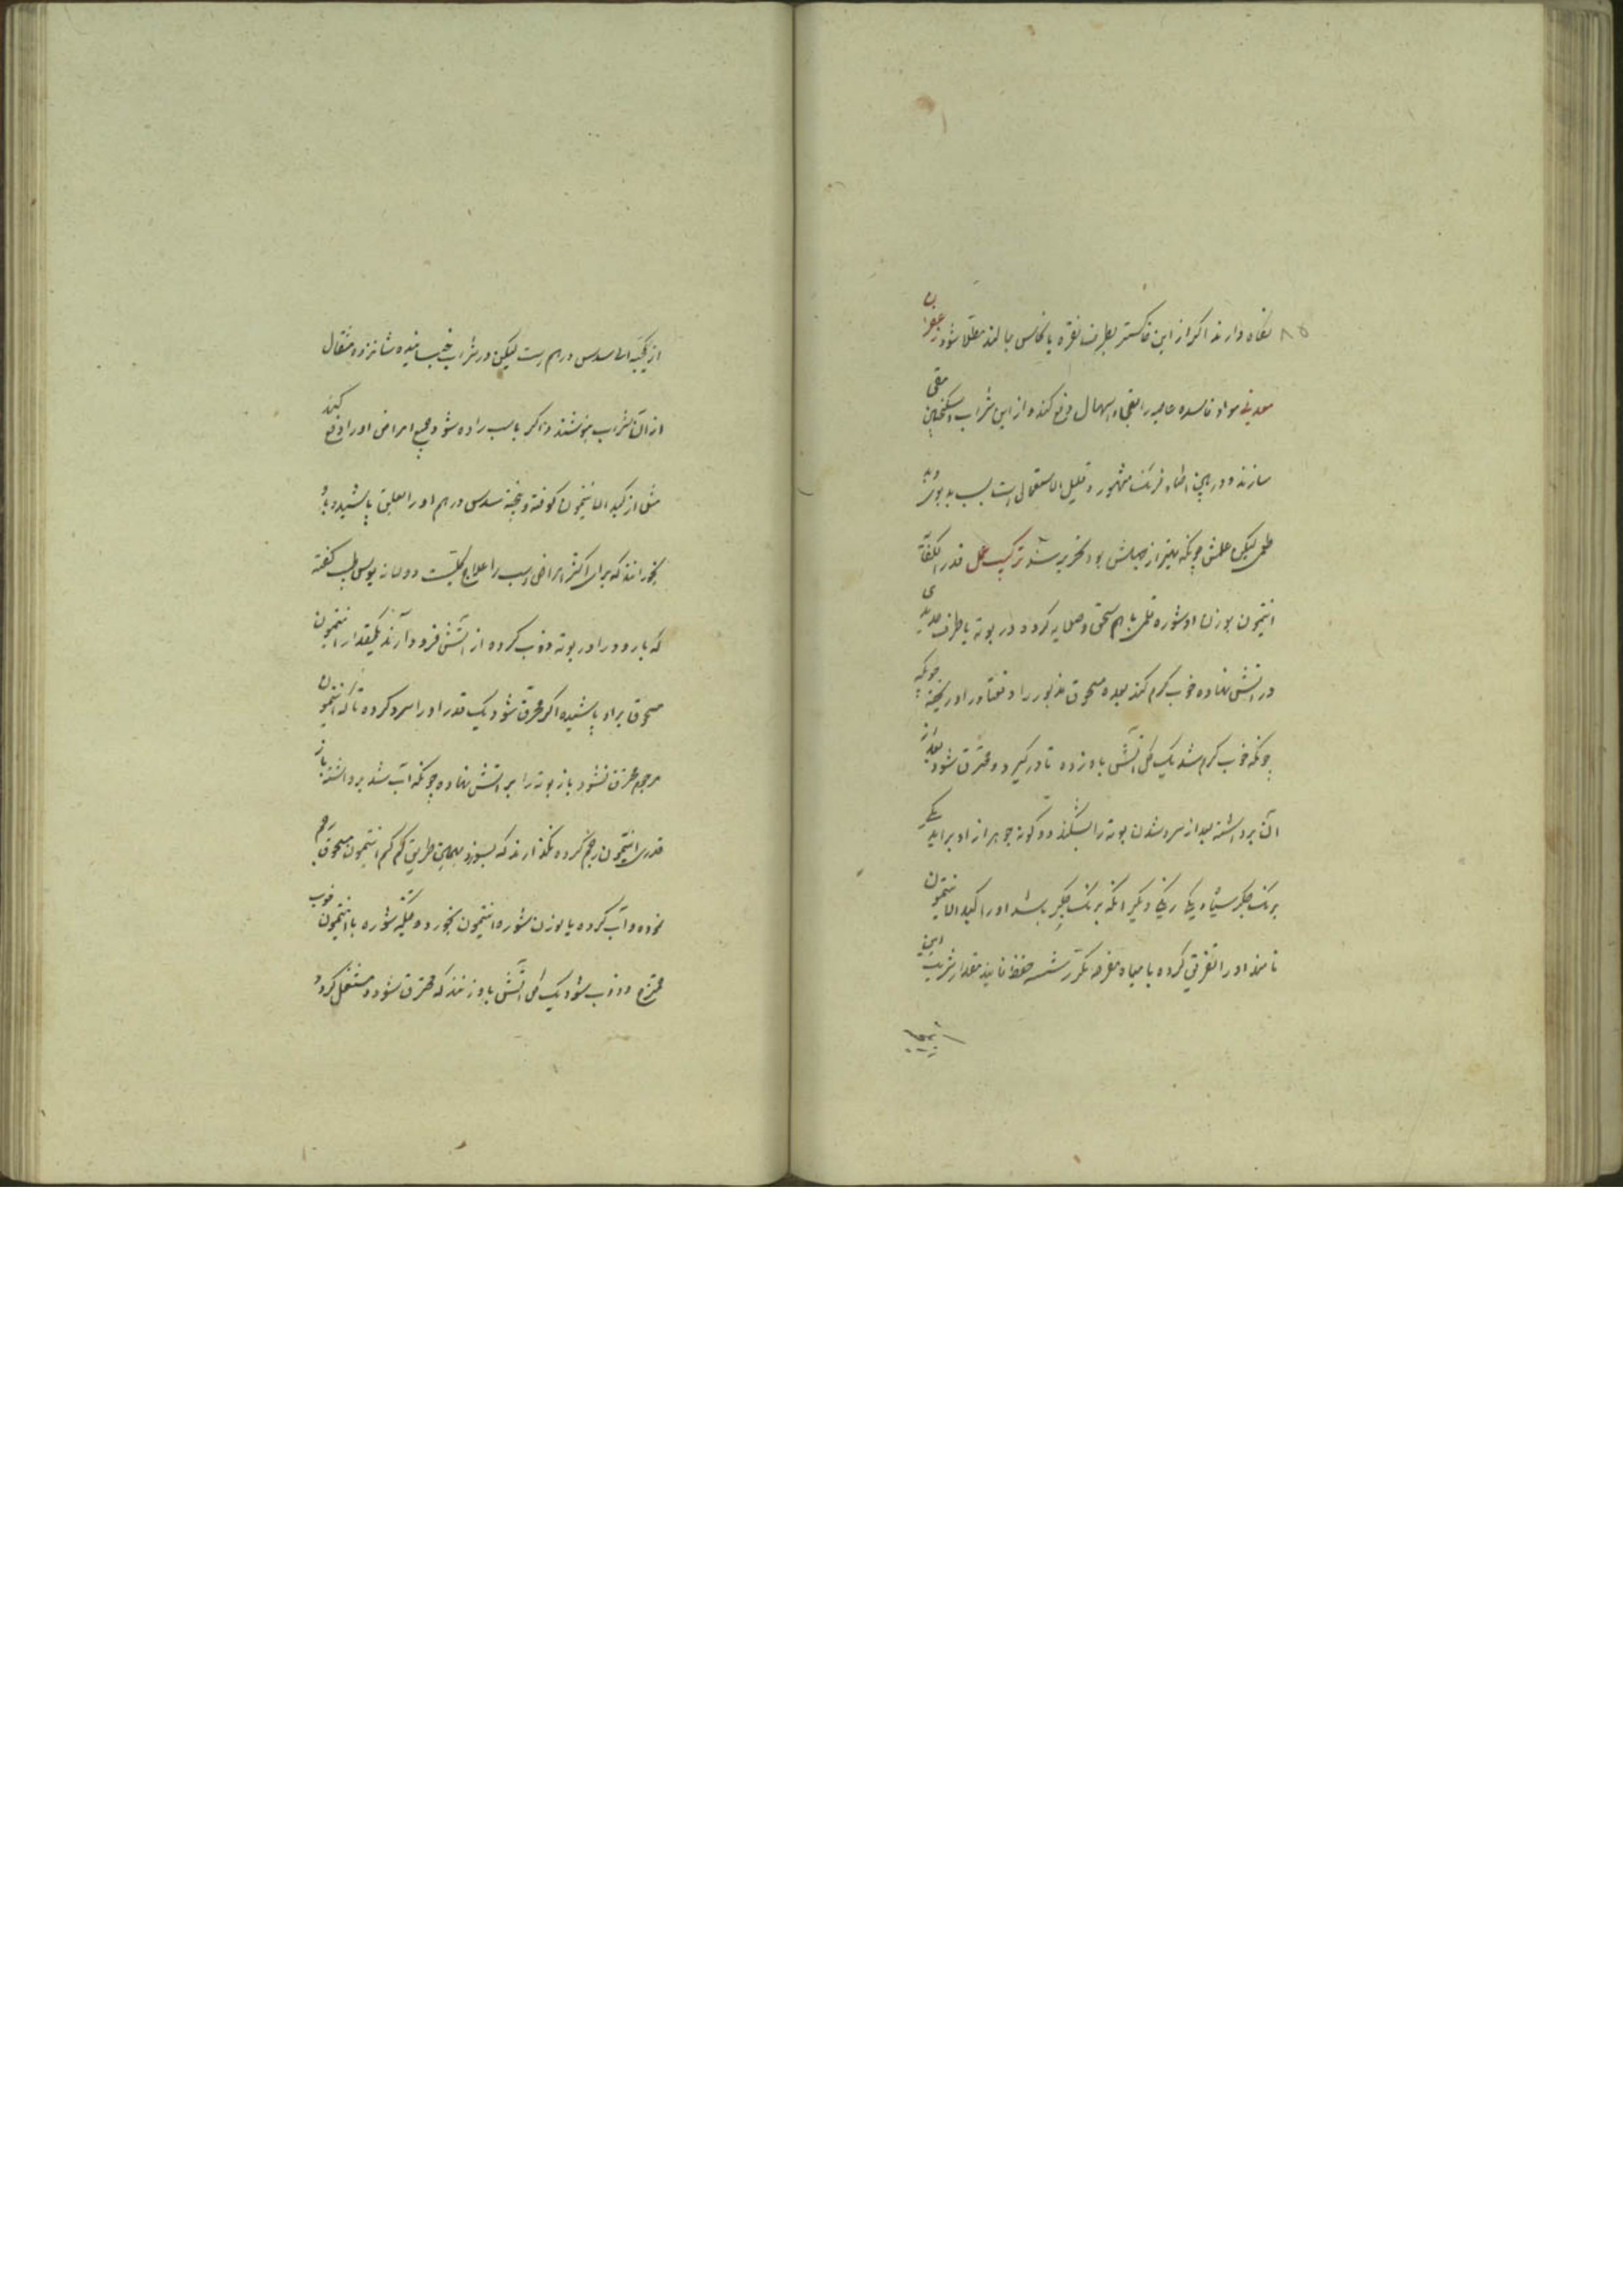 نکاه دارند اکر از این خاکستر بظرف نقره یا نحاس بمالند مطلا شود زعفران
معدنی مواد فاسده عاصیه را بقی و اسهال دفع کند و از این شراب و سکنجبین مقی
سازند و در بین اطباء فرنک مشهور و قلیل الاستعمال است بسبب
لیکن علمش چونکه بهتر از جهلش بود تحریر شد ترکیب عمل قدر الکفایه
انتیمون بوزن او شوره قلمی باهم سحق و صلایه کرده در بوته یا ظرف حدیدی
در اتش نهاده خوب کرم کنند بعده مسحوق مذبور را دفعتا در او ریخته چونکه
چونکه خوب کرم شد یک کل آتش باو زده تا در کیرد و محترق شود بعد از
آن برداشته بعد از سرد شدن بوته را بشکنند دو کونه جوهر از او براید یکی
برنک جکر سیاه یکی دیکر انکه برنک جکر باشد اورا کبد الانتیمون
نامند اورا تفریق کرده با میاه مفرحه مکرر شسته حفظ نمایند مقدار شربت این
از یکحبه الی سدس درهم است لیکن در شراب خیسانیده شانزده مثقال
از آن شراب بنوشند و اکر باسب داده شود جمیع امراض اورا دفع کند
مثل از کبد الانتیمون کوفته و بیخته سدس درهم اورا بعلیق پاشیده باو
بخورانند که برای اکثر امراض اسب را علاج کلیست دولانه یوس طبیب کفته
که بارود را در بوته ذوب کرده از آتش فرود آرند یکمقدار انتیمون
مسحوق براو پاشیده اکر محرق شود یک قدر اورا سرد کرده تا که انتیمون
مرجوم محترق نشود باز بوته را بر اتش نهاده چونکه آب شد برداشته باز
قدری انتیمون رجم کرده نکذارند که بسوزد بهمین طریق کم کم انتیمون مسحوق رجم
نموده و آب کرده تا بوزن شوره انتیمون بخورد وقتیکه شوره با انتیمون خوب
ممتزج و ذوب شود یک کل آتش باو زنند که محترق شود و مشتعل کردد